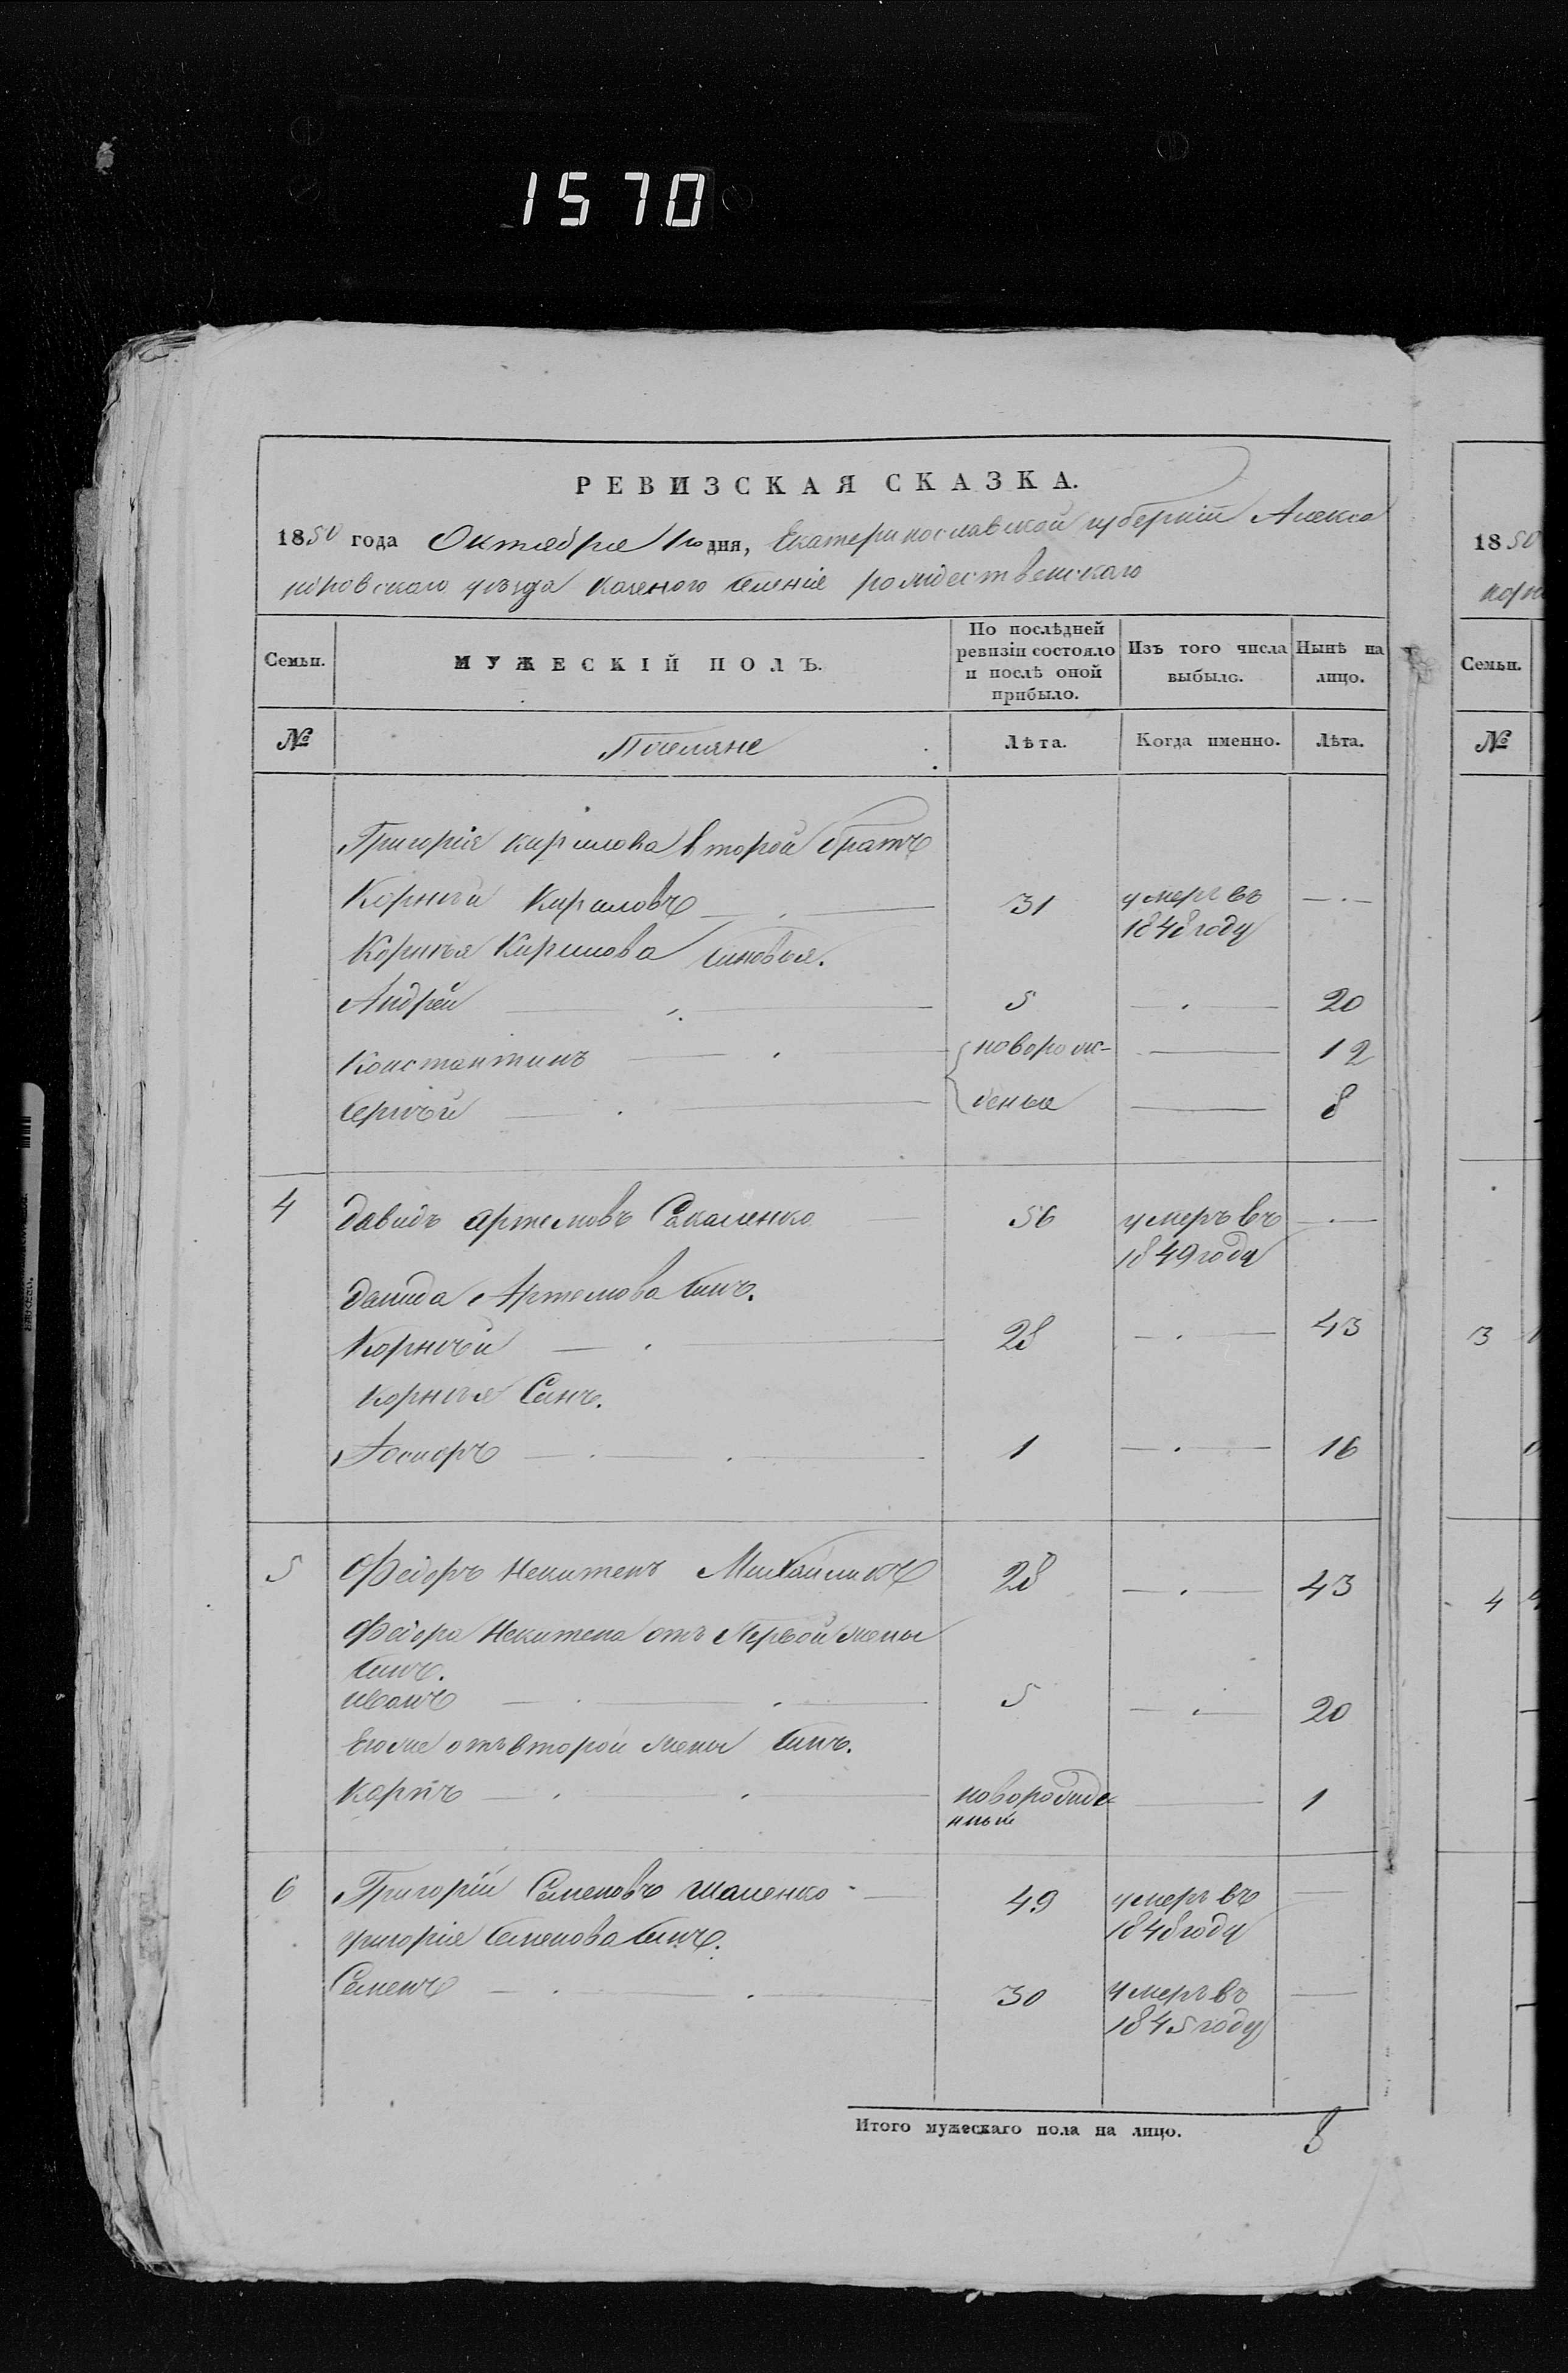 1570
РЕВИЗСКАЯ СКАЗКА.
1850 года Октября 1го дня, Екатеринославской губернии Алекса
ндровского уезда казеного селение рождественскаго
Семьи.
МУЖЕСКІЙ ПОЛЪ.
По послѣдней ревизіи состояло и послѣ оной прибыло.
Изъ того числа выбыло.
Нынѣ на лицо.
№
Поселяне
Лѣта.
Когда именно.
Лѣта.
Григорія кирилова второй братъ
Корнѣй Кириловъ 31 умеръ въ 1848 году
Корнѣя Кирилова сыновья.
Андрей 5 20
Константинъ новорож- 12
Сергѣй деные 8
4 Давидъ Артемовъ Сакаленко 56 умеръ въ 1849 году
Давида Артемова сынъ.
Корнѣй 28 43
Корнѣя Сынъ.
1 16
5 Федоръ Никитенъ Михайликъ 28 43
Федора Никитена отъ первой жены
сынъ.
иванъ 5 20
Его же отъ второй жены сынъ.
Карпъ новорожде нный 1
6 Григорій Семеновъ Шаленко 49 умеръ въ 1848 году
григорія Семенова сынъ.
Семенъ 30 умеръ въ 1845 году
Итого мужескаго пола на лицо. 8
1850
Семьи.
№
3
4